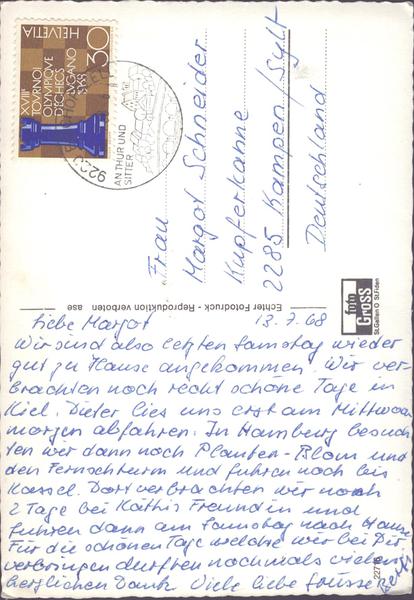 HELVETIA 30
XVIIIe
TOURNOI
OLYMPIQUE
D'ECHECS
LUGANO
1968
9220
AN THUR UND
SITTER
Frau
Margot Schneider
Kupferkanne
2285 Kampen/Sylt
Deutschland
foto
GROSS
St.Gallen O St.Fiden
Echter Fotodruck - Reproduktion verboten
Liebe Margot 13.7.68
Wir sind also letzten Samstag wieder
gut zu Hause angekommen. Wir ver-
brachten noch recht schöne Tage in
Kiel. Dieter lies uns erst am Mittwoch
morgen abfahren. In Hamburg besuch
ten wir dann noch Planten-Blom und
den Fernsehturm und fuhren noch bis
Kassel. Dort verbrachten wir noch
2 Tage bei Käthis Freundin und
fuhren dann am Samstag nach Hause
Für die schönen Tage welche wir bei Dir
verbringen durften nochmals vielen
herzlichen Dank. Viele liebe Grüsse